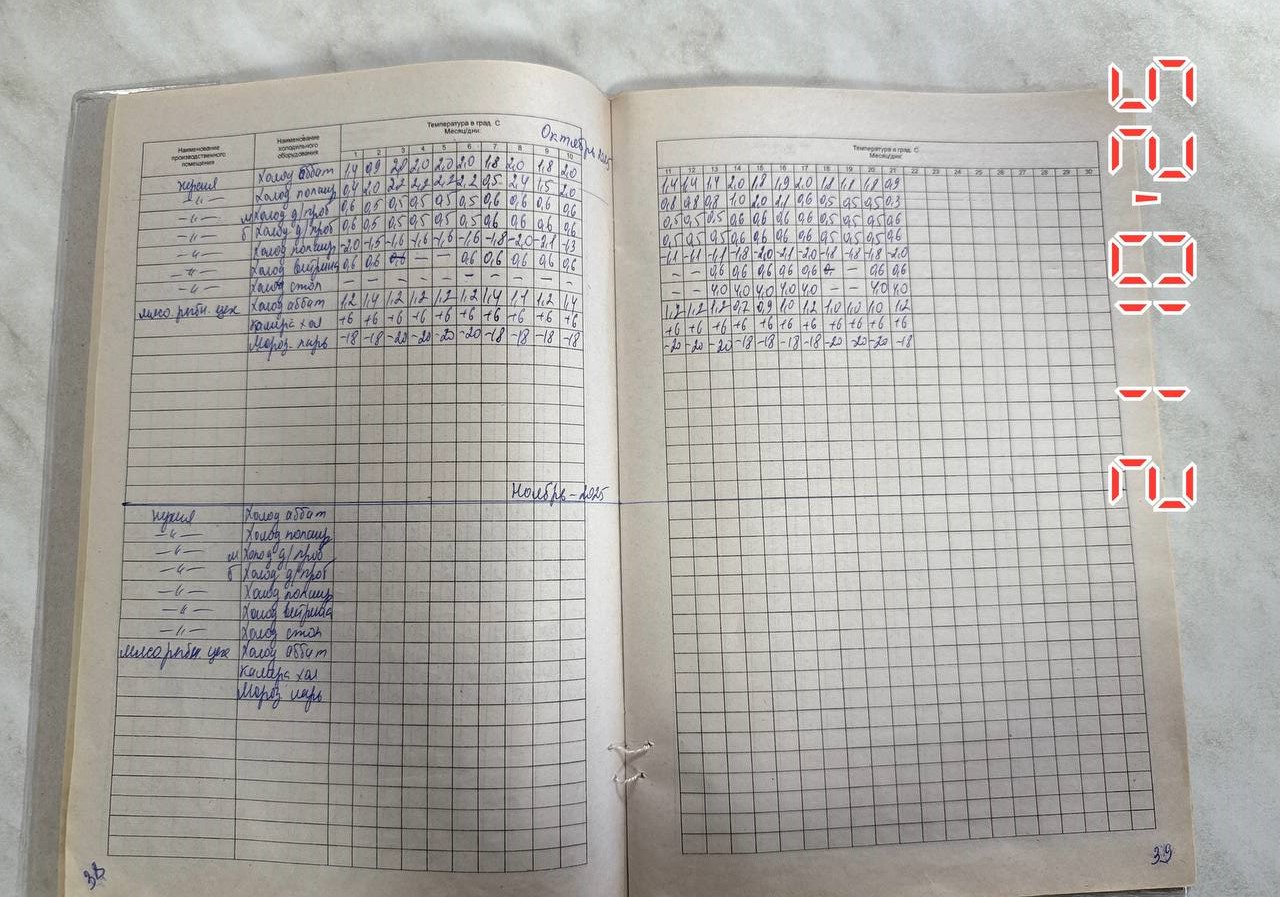 Температура в град. С
Месяц/дни:
Октябрь 2025
Наименование производственного помещения
Наименование холодильного оборудования
1 2 3 4 5 6 7 8 9 10
кухня Холод аббат 1,4 0,9 2,0 2,0 2,0 2,0 1,8 2,0 1,8 2,0
—"— Холод 0,4 2,0 2,2 2,2 2,2 2,2 0,5 2,4 1,5 2,0
—"— м Холод д/проб 0,6 0,5 0,5 0,5 0,5 0,5 0,6 0,6 0,6 0,6
—"— б Холод д/проб 0,6 0,5 0,5 0,5 0,5 0,5 0,6 0,6 0,6 0,6
—"— Холод -2,0 -1,5 -1,6 -1,6 -1,6 -1,6 -1,8 -2,0 -2,1 -1,3
—"— Холод витрина 0,6 0,6 — — 0,6 0,6 0,6 0,6 0,6
—"— Холод стол — — — — — — —
мясо рыбн. цех Холод аббат 1,2 1,4 1,2 1,2 1,2 1,2 1,4 1,4 1,2 1,4
Камера хол +6 +6 +6 +6 +6 +6 +6 +6 +6 +6
Мороз ларь -18 -18 -20 -20 -20 -20 -18 -18 -18 -18
Ноябрь - 2025
кухня Холод аббат
—"— Холод
—"— м Холод д/проб
—"— б Холод д/проб
—"— Холод
—"— Холод витрина
—"— Холод стол
мясо рыбн цех Холод аббат
Камера хол
Мороз ларь
38
Температура в град. С
Месяц/дни:
11 12 13 14 15 16 17 18 19 20 21 22 23 24 25 26 27 28 29 30
1,4 1,4 1,4 2,0 1,8 1,9 2,0 1,8 1,8 1,8 0,9
0,8 0,8 0,8 1,0 2,0 2,1 0,6 0,5 0,5 0,5 0,3
0,5 0,5 0,5 0,6 0,6 0,6 0,6 0,5 0,5 0,5 0,6
0,5 0,5 0,5 0,6 0,6 0,6 0,6 0,5 0,5 0,5 0,6
-1,1 -1,1 -1,1 -1,8 -2,0 -2,1 -2,0 -1,8 -1,8 -1,8 -2,0
— — 0,6 0,6 0,6 0,6 0,6 — 0,6 0,6
— — 4,0 4,0 4,0 4,0 4,0 — — 4,0 4,0
1,2 1,2 1,2 0,7 0,9 1,0 1,2 1,0 1,0 1,0 1,2
+6 +6 +6 +6 +6 +6 +6 +6 +6 +6 +6
-20 -20 -20 -18 -18 -18 -18 -20 -20 -20 -18
39
21.10.'25